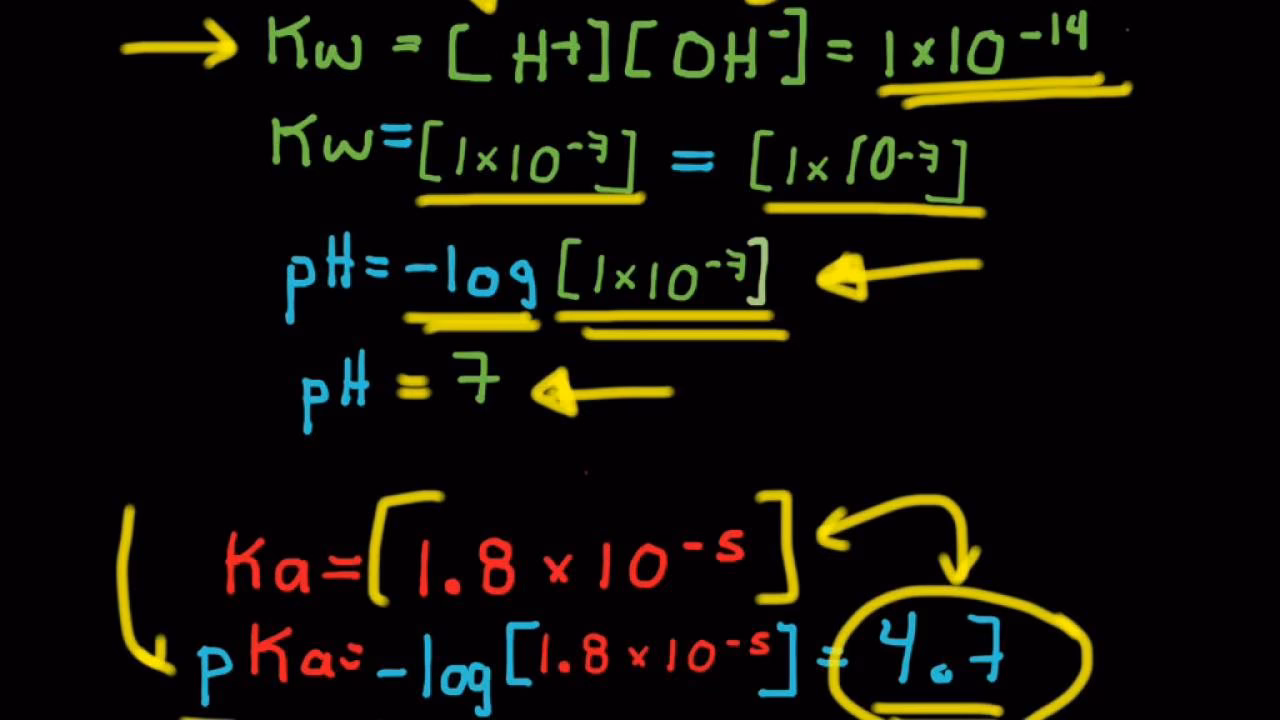 Kw = [H+][OH⁻] = 1×10⁻¹⁴
Kw=[1×10⁻⁷] = [1×10⁻⁷]
pH= -log [1×10⁻⁷]
pH = 7
Ka=[1.8 ×10⁻⁵]
pKa= -log[1.8 ×10⁻⁵] = 4.7